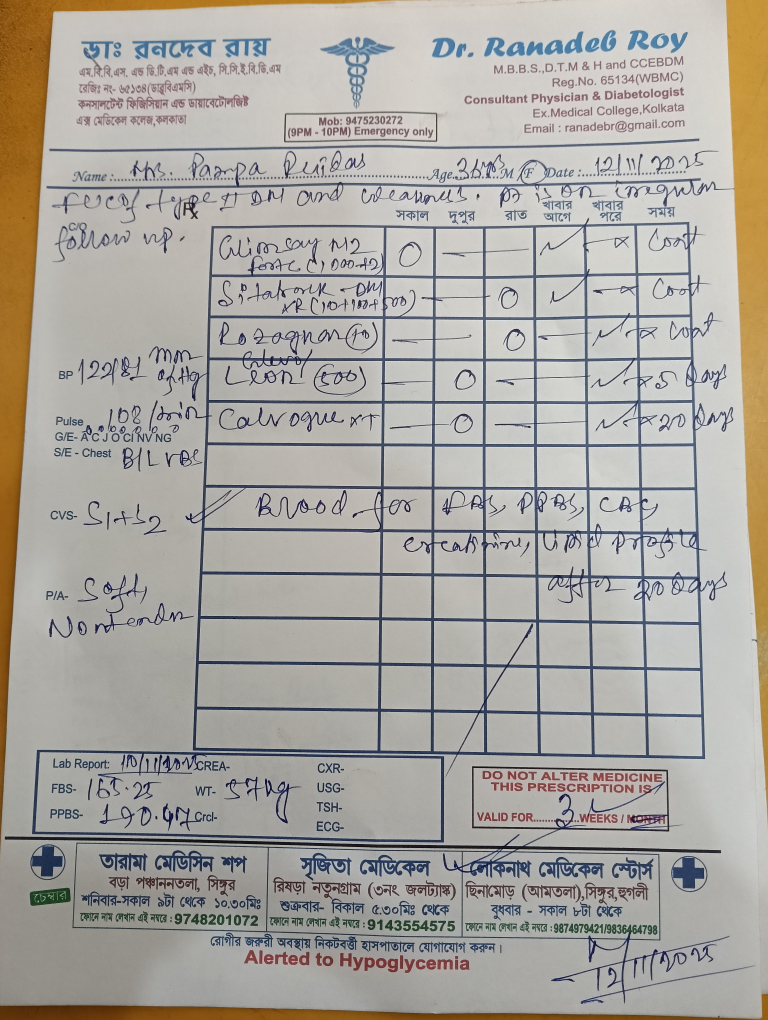 ডাঃ রনদেব রায়
এম.বি.বি.এস. এন্ড ডি.টি.এম এন্ড এইচ, সি.সি.ই.বি.ডি.এম
রেজিঃ নং- ৬৫১৩৪(ডাব্লুবিএমসি)
কনসালটেন্ট ফিজিসিয়ান এন্ড ডায়াবেটোলজিষ্ট
এক্স মেডিকেল কলেজ,কলকাতা
Mob: 9475230272
(9PM - 10PM) Emergency only)
Dr. Ranadeb Roy
M.B.B.S.,D.T.M & H and CCEBDM
Reg.No. 65134(WBMC)
Consultant Physician & Diabetologist
Ex.Medical College,Kolkata
Email : ranadebr@gmail.com
Name : Mrs. Pampa Age M / F Date : 12/11/2025
type II DM and weakness. Pt is on irregular
follow up.
C/O
Rx
সকাল দুপুর রাত খাবার আগে খাবার পরে সময়
M2 forte (1000+2) O — — ✓ Cont
DM XR (10+100+500) — O ✓ Cont
(10) — O — Cont
(500) — O — 5 Days
XT — O — 20 Days
BP 122/81 mm of Hg
Pulse 108/min
G/E- A C J O CI NV NG
S/E - Chest B/L VBS
CVS- S1+S2
P/A- Soft,
Nontender
Blood for FBS, PPBS, CBC,
creatinine, lipid profile
after 20 Days
Lab Report: 10/11/2025 CREA- CXR-
FBS- 165.25 WT- 57kg USG-
PPBS- 190.47 Crcl- TSH-
ECG-
DO NOT ALTER MEDICINE
THIS PRESCRIPTION IS
VALID FOR 3 WEEKS / MONTH
চেম্বার
তারামা মেডিসিন শপ
বড়া পঞ্চাননতলা, সিঙ্গুর
শনিবার-সকাল ৯টা থেকে ১০.৩০মিঃ
ফোনে নাম লেখান এই নম্বরে : 9748201072
সৃজিতা মেডিকেল
রিষড়া নতুনগ্রাম (৩নং জলট্যাঙ্ক)
শুক্রবার- বিকাল ৫.৩০মিঃ থেকে
ফোনে নাম লেখান এই নম্বরে : 9143554575
লোকনাথ মেডিকেল স্টোর্স
ছিনামোড় (আমতলা),সিঙ্গুর,হুগলী
বুধবার - সকাল ৮টা থেকে
ফোনে নাম লেখান এই নম্বরে :9874979421/9836464798
রোগীর জরুরী অবস্থায় নিকটবর্ত্তী হাসপাতালে যোগাযোগ করুন।
Alerted to Hypoglycemia
12/11/2025